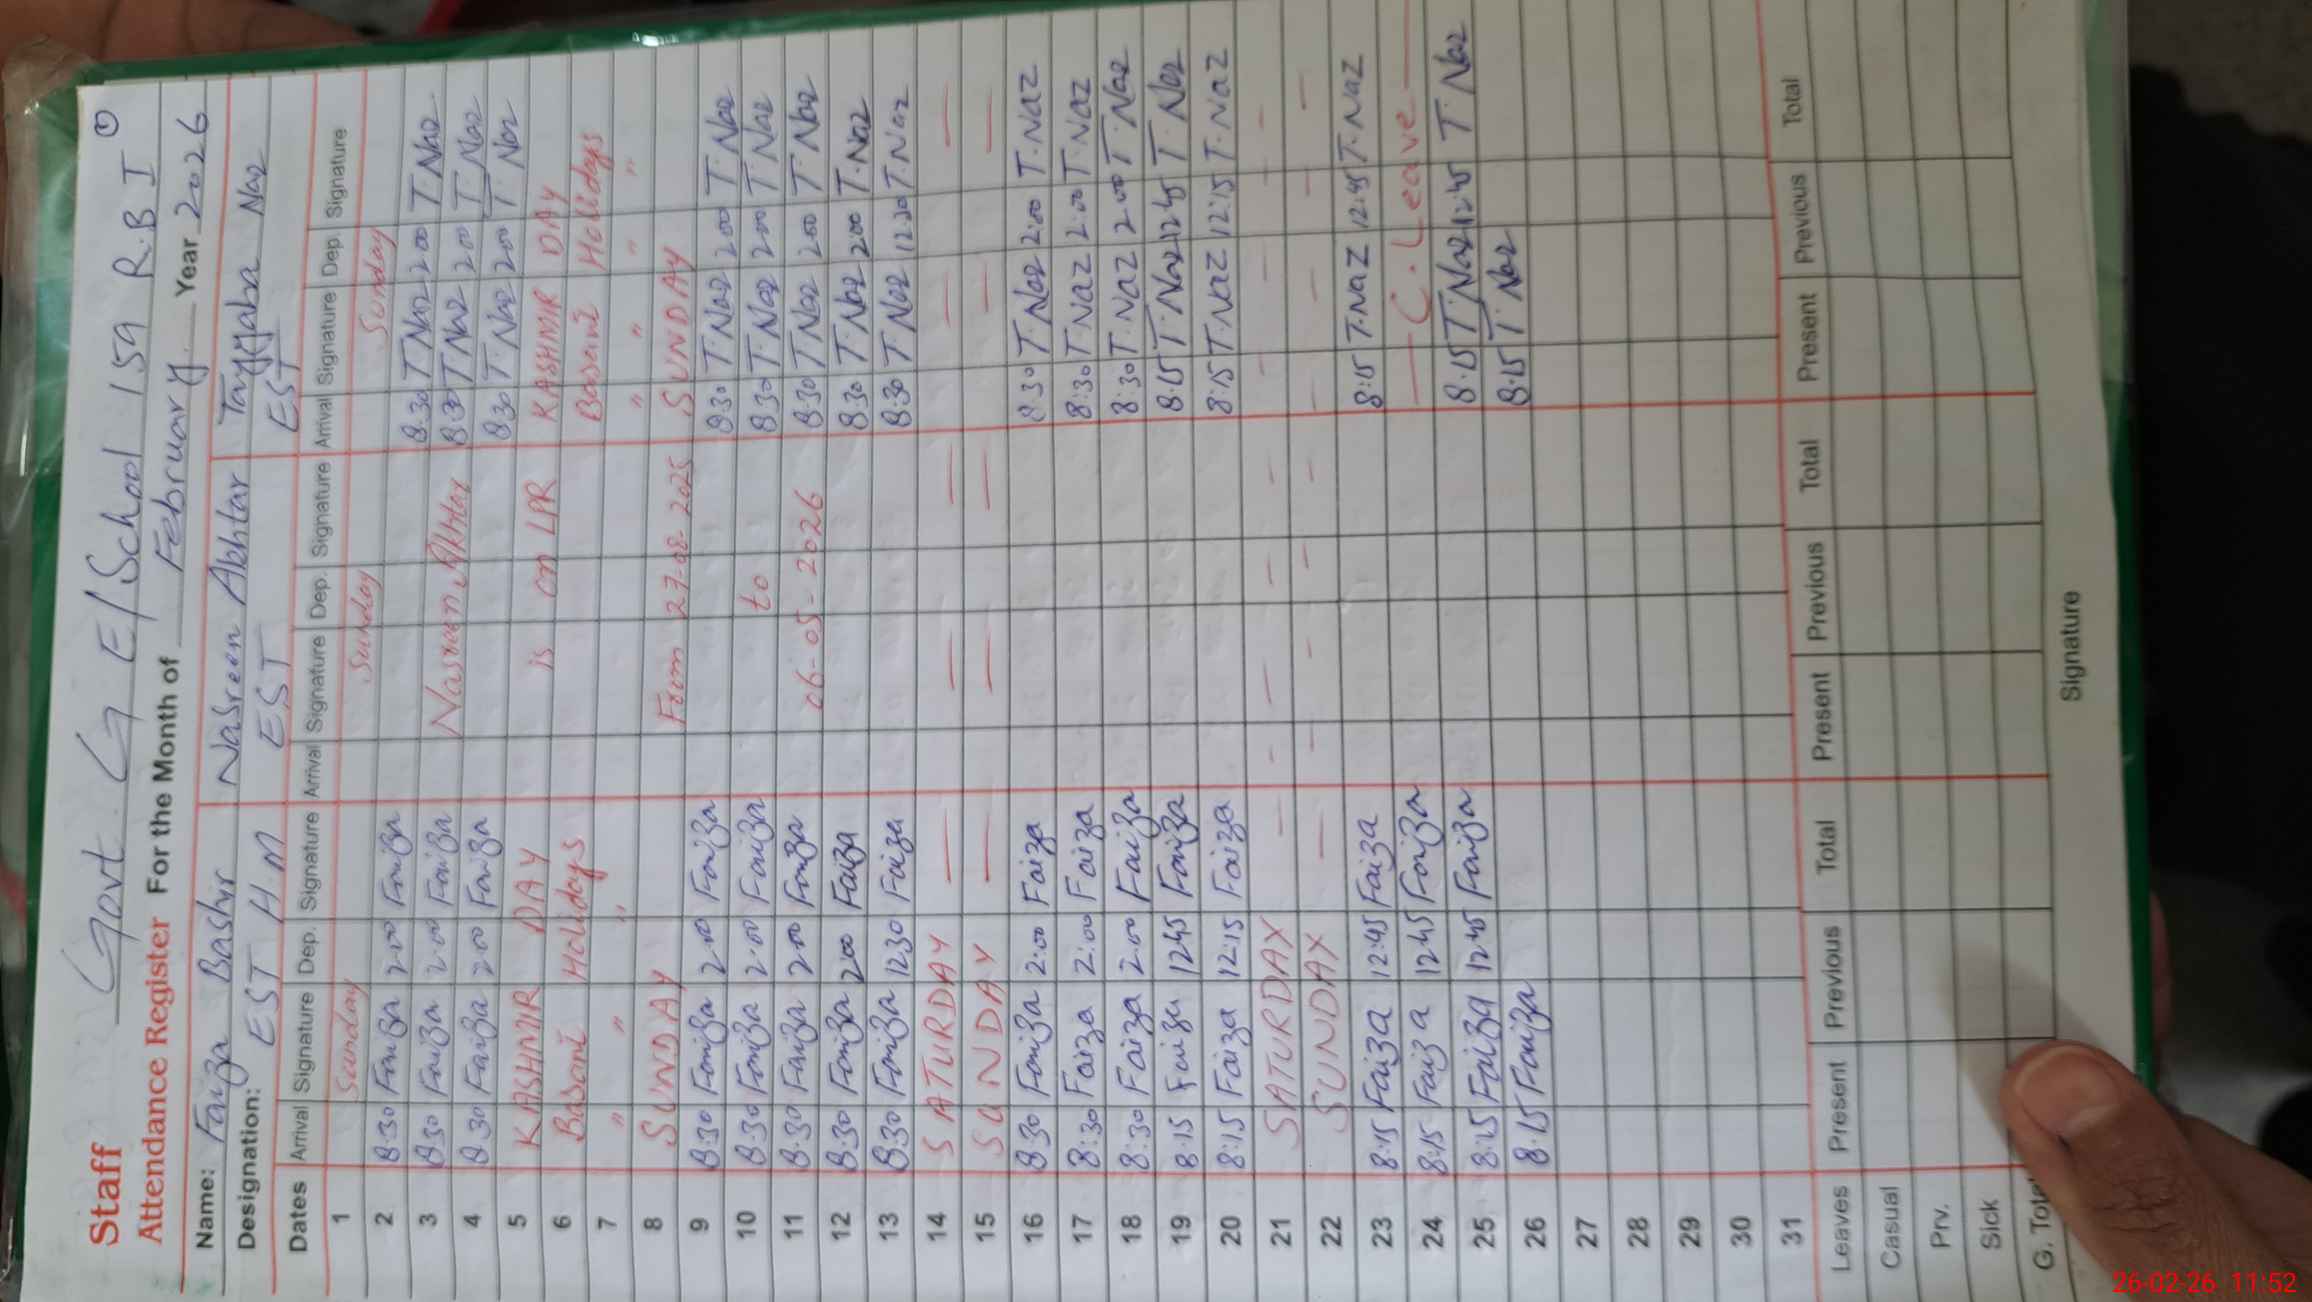 Staff Govt. G E/School 159 R.B I 1
Attendance Register For the Month of February Year 2026
Name: Faiza Bashir Nasreen Akhtar Tayyaba Naz
Designation: EST H.M EST EST
Dates Arrival Signature Dep. Signature Arrival Signature Dep. Signature Arrival Signature Dep. Signature
1 Sunday Sunday Sunday
2 8:30 Faiza 2:00 Faiza 8:30 T.Naz 2:00 T.Naz
3 8:30 Faiza 2:00 Faiza Nasreen Akhtar 8:30 T.Naz 2:00 T.Naz
4 8:30 Faiza 2:00 Faiza 8:30 T.Naz 2:00 T.Naz
5 KASHMIR DAY is on LPR KASHMIR DAY
6 Basant Holidays Basant Holidays
7 " " " " " " "
8 SUNDAY From 27-08 2025 SUNDAY
9 8:30 Faiza 2:00 Faiza 8:30 T.Naz 2:00 T.Naz
10 8:30 Faiza 2:00 Faiza to 8:30 T.Naz 2:00 T.Naz
11 8:30 Faiza 2:00 Faiza 06-05-2026 8:30 T.Naz 2:00 T.Naz
12 8:30 Faiza 2:00 Faiza 8:30 T.Naz 2:00 T.Naz
13 8:30 Faiza 12:30 Faiza 8:30 T.Naz 12:30 T.Naz
14 SATURDAY — — — — — —
15 SUNDAY — — — — — —
16 8:30 Faiza 2:00 Faiza 8:30 T.Naz 2:00 T.Naz
17 8:30 Faiza 2:00 Faiza 8:30 T.Naz 2:00 T.Naz
18 8:30 Faiza 2:00 Faiza 8:30 T.Naz 2:00 T.Naz
19 8:15 Faiza 12:45 Faiza 8:15 T.Naz 12:45 T.Naz
20 8:15 Faiza 12:15 Faiza 8:15 T.Naz 12:15 T.Naz
21 SATURDAY — — — — — — — — —
22 SUNDAY — — — — — — — — —
23 8:15 Faiza 12:45 Faiza 8:15 T.Naz 12:45 T.Naz
24 8:15 Faiza 12:45 Faiza — C. Leave —
25 8:15 Faiza 12:45 Faiza 8:15 T.Naz 12:45 T.Naz
26 8:15 Faiza 8:15 T.Naz
27
28
29
30
31
Leaves Present Previous Total Present Previous Total Present Previous Total
Casual
Prv.
Sick
G. Total
Signature
26-02-26 11:52